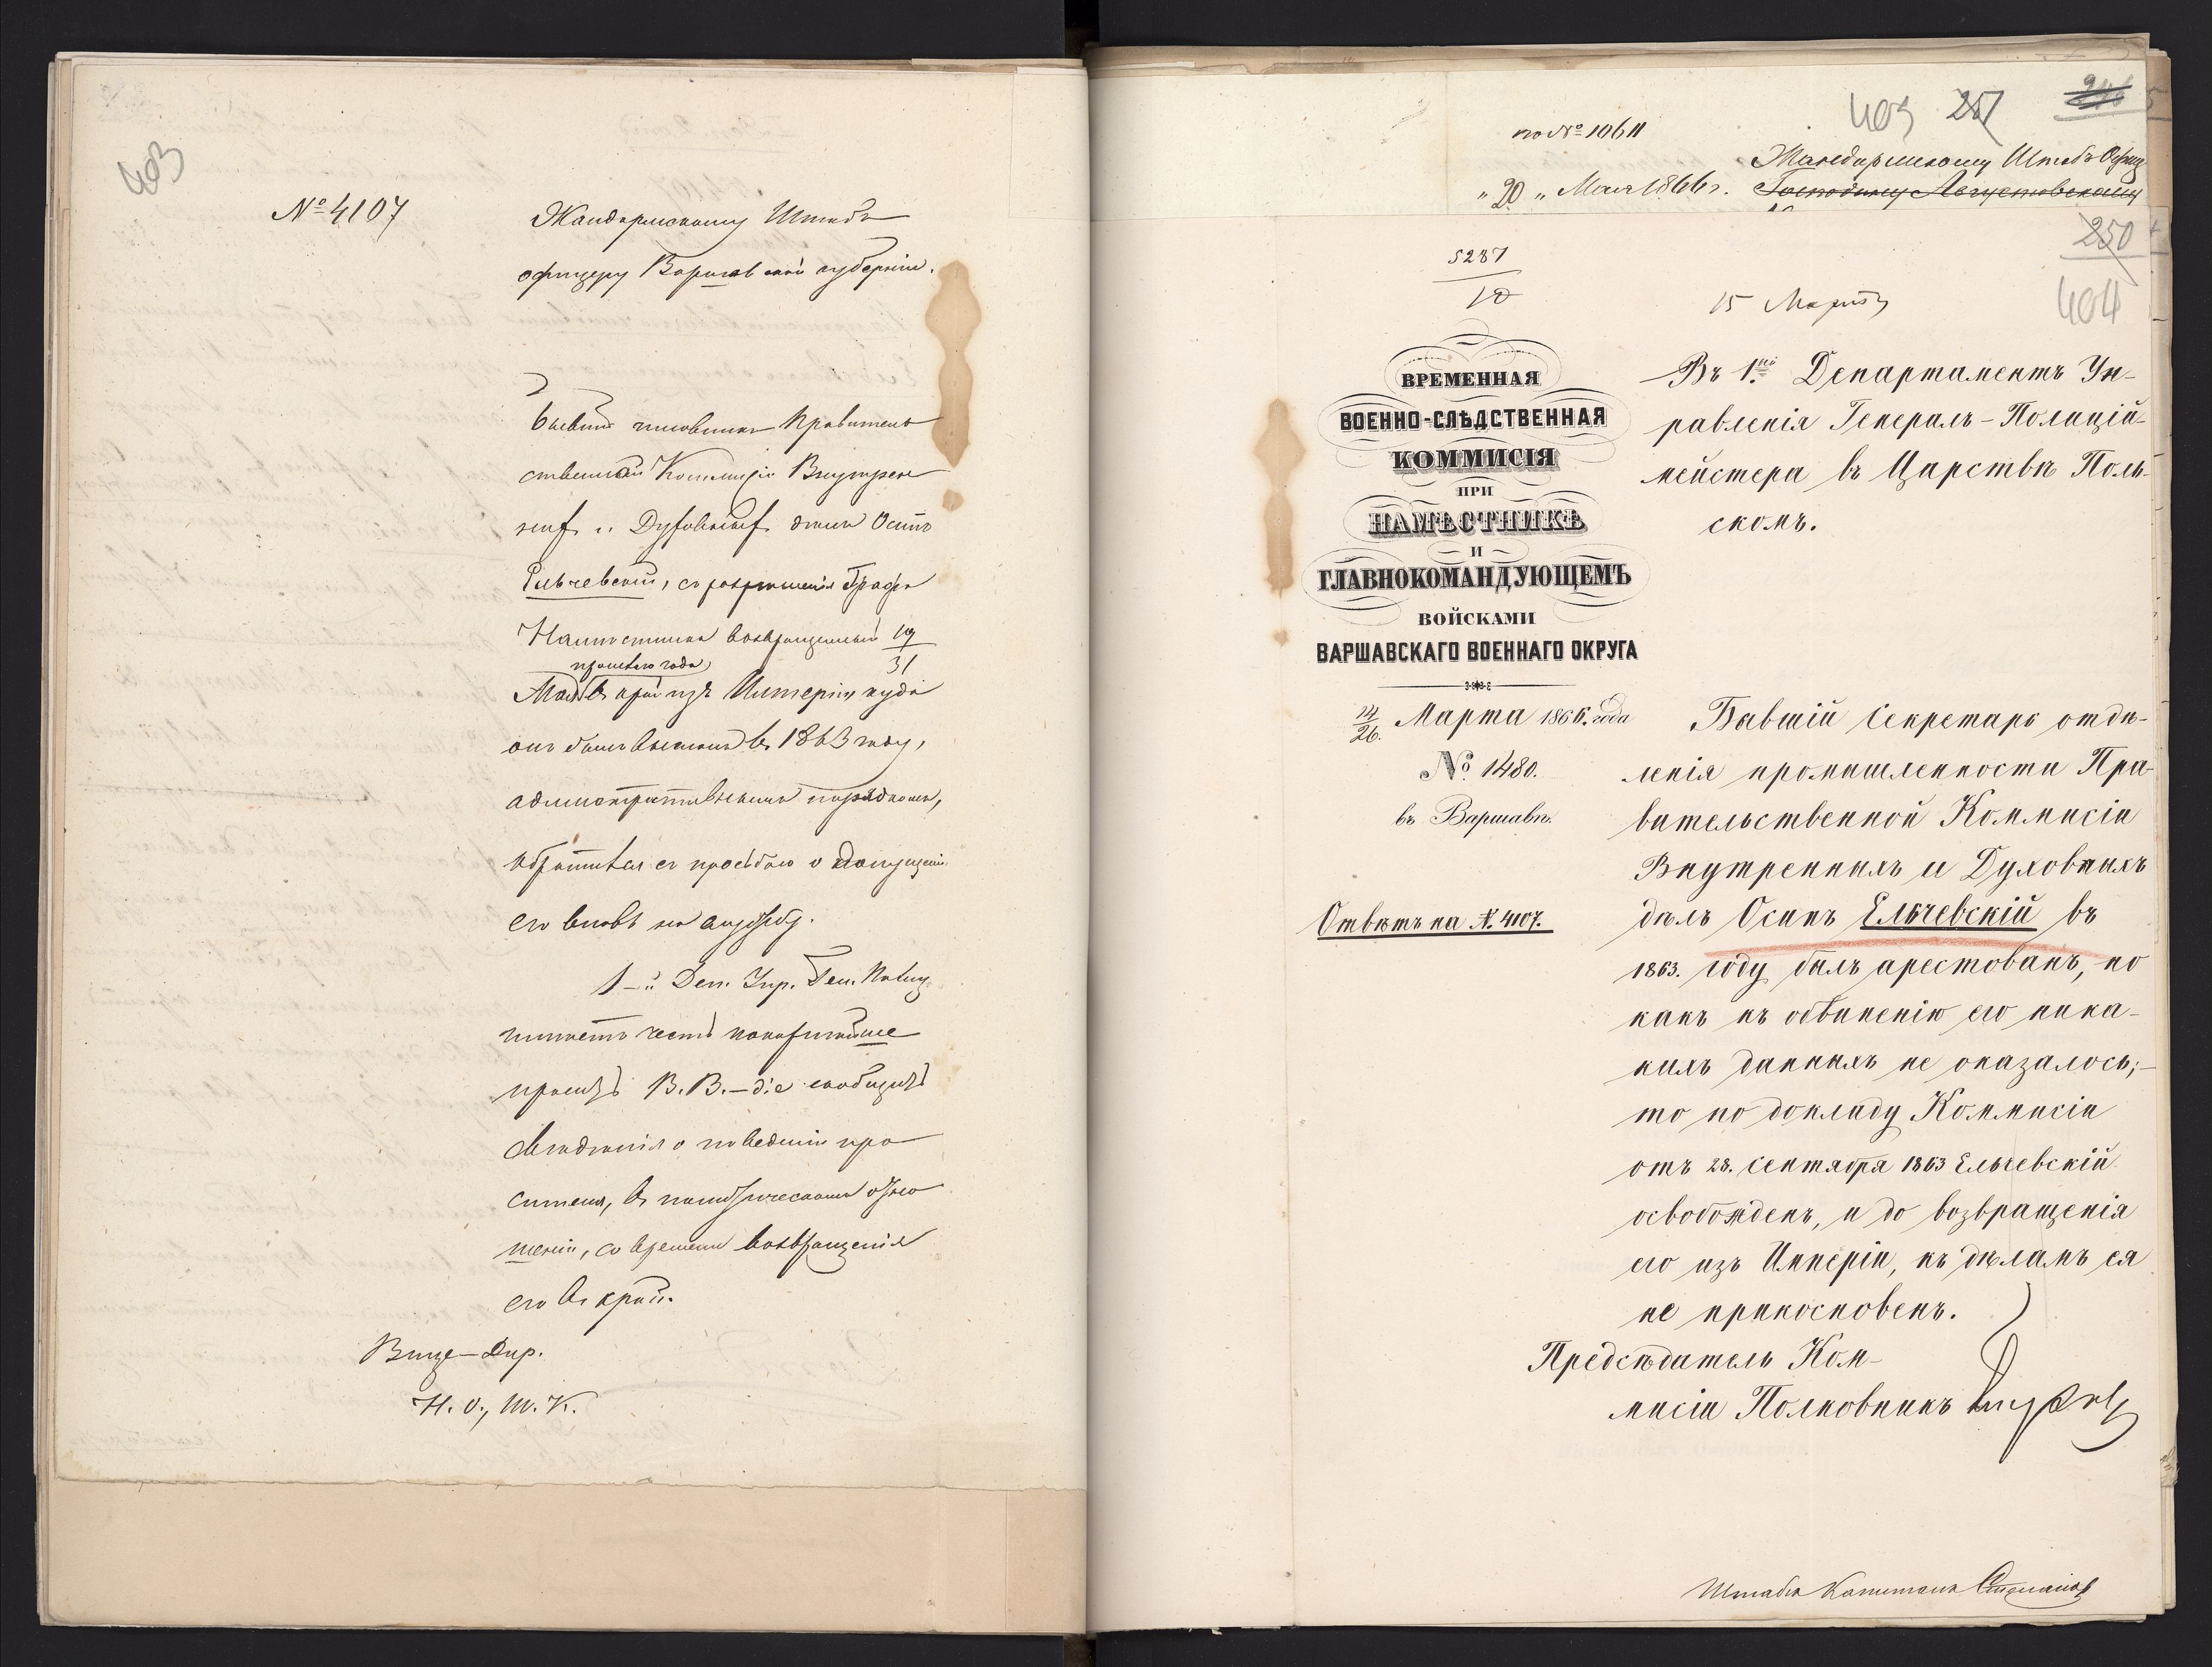 403
№ 4107
Жандармскому Штабъ
офицеру Варшавской губерніи.
Бывшій чиновникъ Правитель
ственной Коммисіи Внутрен
нихъ и Духовныхъ дѣлъ Осипъ
Ельчевскій, съ разрѣшенія Графа
Намѣстника возвращенный 19/31
прошлаго года,
Мая въ край изъ Имперіи куда
онъ былъ высланъ въ 1863 году,
административнымъ порядкомъ,
обратился съ просьбою о допущеніи
его вновь на службу.
1-й Деп. Упр. Ген. Полиц.
имѣетъ честь покорнѣйше
проситъ В. В.-діе сообщить
свѣдѣнія о поведеніи про
сителя, въ политическомъ отно
шеніи, со времени возвращенія
его въ край.
Вице-Дир.
Н. О., Ш. К.
403 257
по № 10611
Жандармскому Штабъ Офиц
"20" Мая 1866 г. Господину Августовскому
250
5287
10
15 Марта
404
ВРЕМЕННАЯ
ВОЕННО-СЛѢДСТВЕННАЯ
КОММИСІЯ
ПРИ
НАМѢСТНИКѢ
И
ГЛАВНОКОМАНДУЮЩЕМЪ
ВОЙСКАМИ
ВАРШАВСКАГО ВОЕННАГО ОКРУГА
14/26. Марта 1866. года
№ 1480.
въ Варшавѣ.
Отвѣтъ на №. 4107.
Въ 1.й Департаментъ Уп-
равленія Генералъ-Полицій-
мейстера въ Царствѣ Поль-
скомъ.
Бывшій Секретарь отдѣ-
ленія промышленности Пра-
вительственной Коммисіи
Внутреннихъ и Духовныхъ
дѣлъ Осипъ Ельчевскій въ
1863. году былъ арестованъ, но
какъ къ обвиненію его ника-
кихъ данныхъ не оказалось;-
то по докладу Коммисіи
отъ 28. Сентября 1863 Ельчевскій
освобожденъ, и до возвращенія
его изъ Имперіи, къ дѣламъ ея
не прикосновенъ.
Предсѣдатель Ком-
мисіи Полковникъ
Штабсъ Капитанъ Степановъ